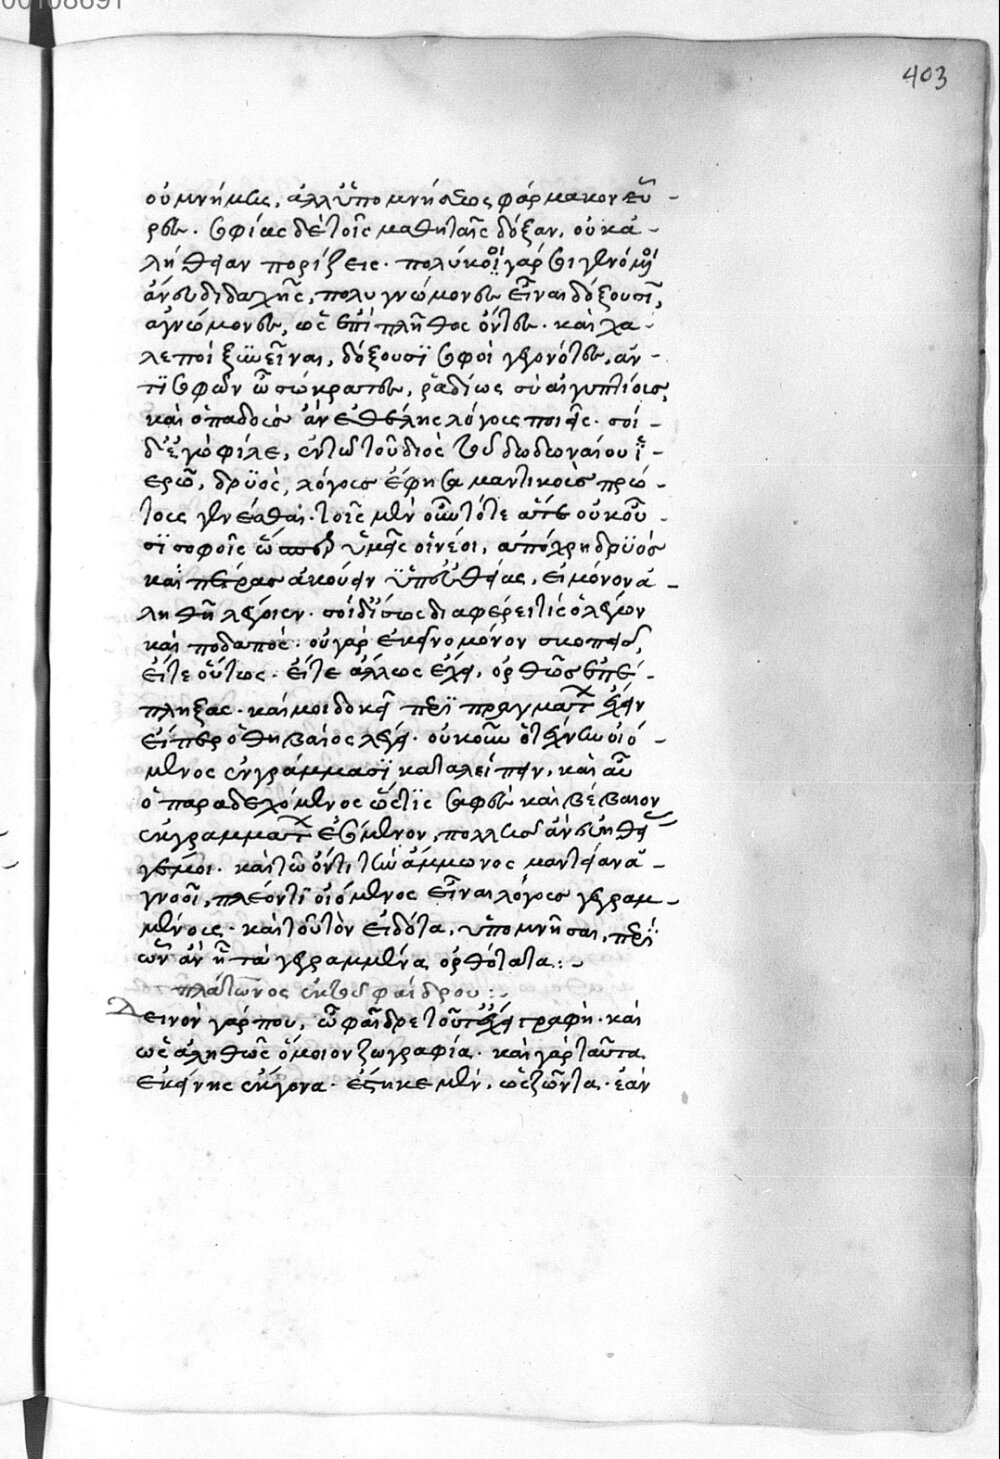 00108691
403
οὐ μνήμης, ἀλλ' ὑπομνήσεως φάρμακον εὗ -
ρες. σοφίας δὲ τοῖς μαθηταῖς δόξαν, οὐκ ἀ -
λήθειαν πορίζεις. πολύκοοι γάρ σοι γενόμενοι
ἄνευ διδαχῆς, πολυγνώμονες εἶναι δόξουσιν,
ἀγνώμονες, ὡς ἐπὶ πλῆθος ὄντες. καὶ χα -
λεποὶ ξυνεῖναι, δόξουσι σοφοὶ γεγονότες, ἀν -
τὶ σοφῶν ὦ σώκρατες, ῥαδίως σὺ αἰγυπτίους,
καὶ ὁπαδοὺς ἂν ἐθέλῃς λόγους ποιεῖς. σοὶ -
δ' ἐγὼ φίλε, ἐν τῷ τοῦ διὸς τοῦ δωδωναίου ἱ -
ερῷ, δρυὸς, λόγους ἔφησα μαντικοὺς πρώ -
τους γενέσθαι. τοῖς μὲν οὖν τότε ἅτε οὐκ οὖ -
σι σοφοῖς ὥσπερ ὑμεῖς οἱ νέοι, ἀπόχρη δρυὸς
καὶ πέτρας ἀκούειν ὑπ' εὐηθείας, εἰ μόνον ἀ -
ληθῆ λέγοιεν. σοὶ δ' ἴσως διαφέρει τίς ὁ λέγων
καὶ ποδαπός. οὐ γὰρ ἐκεῖνο μόνον σκοπεῖς,
εἴτε οὕτως. εἴτε ἄλλως ἔχει. ὀρθῶς ἐπέ -
πληξας. καί μοι δοκεῖ περὶ πραγμάτων ἔχειν
ᾗπερ ὁ θηβαῖος λέγει. οὐκοῦν ὁ τέχνην οἰό -
μενος ἐν γράμμασι καταλείπειν, καὶ αὖ
ὁ παραδεχόμενος ὥς τι σαφὲς καὶ βέβαιον
ἐκ γραμμάτων ἐσόμενον, πολλῆς ἂν εὐηθείας
γέμοι. καὶ τῷ ὄντι τὴν ἄμμωνος μαντείαν ἀ -
γνοοῖ, πλέον τι οἰόμενος εἶναι λόγους γεγραμ -
μένους. καὶ τοῦ τὸν εἰδότα, ὑπομνῆσαι, περὶ
ὧν ἂν ᾖ τὰ γεγραμμένα ὀρθότατα:
πλάτωνος ἐκ τοῦ φαίδρου:
Δεινὸν γάρ που, ὦ φαῖδρε τοῦτ' ἔχει γραφή. καὶ
ὡς ἀληθῶς ὅμοιον ζωγραφία. καὶ γὰρ ταῦτα
ἐκείνης ἔκγονα. ἕστηκε μὲν, ὡς ζῶντα. ἐὰν